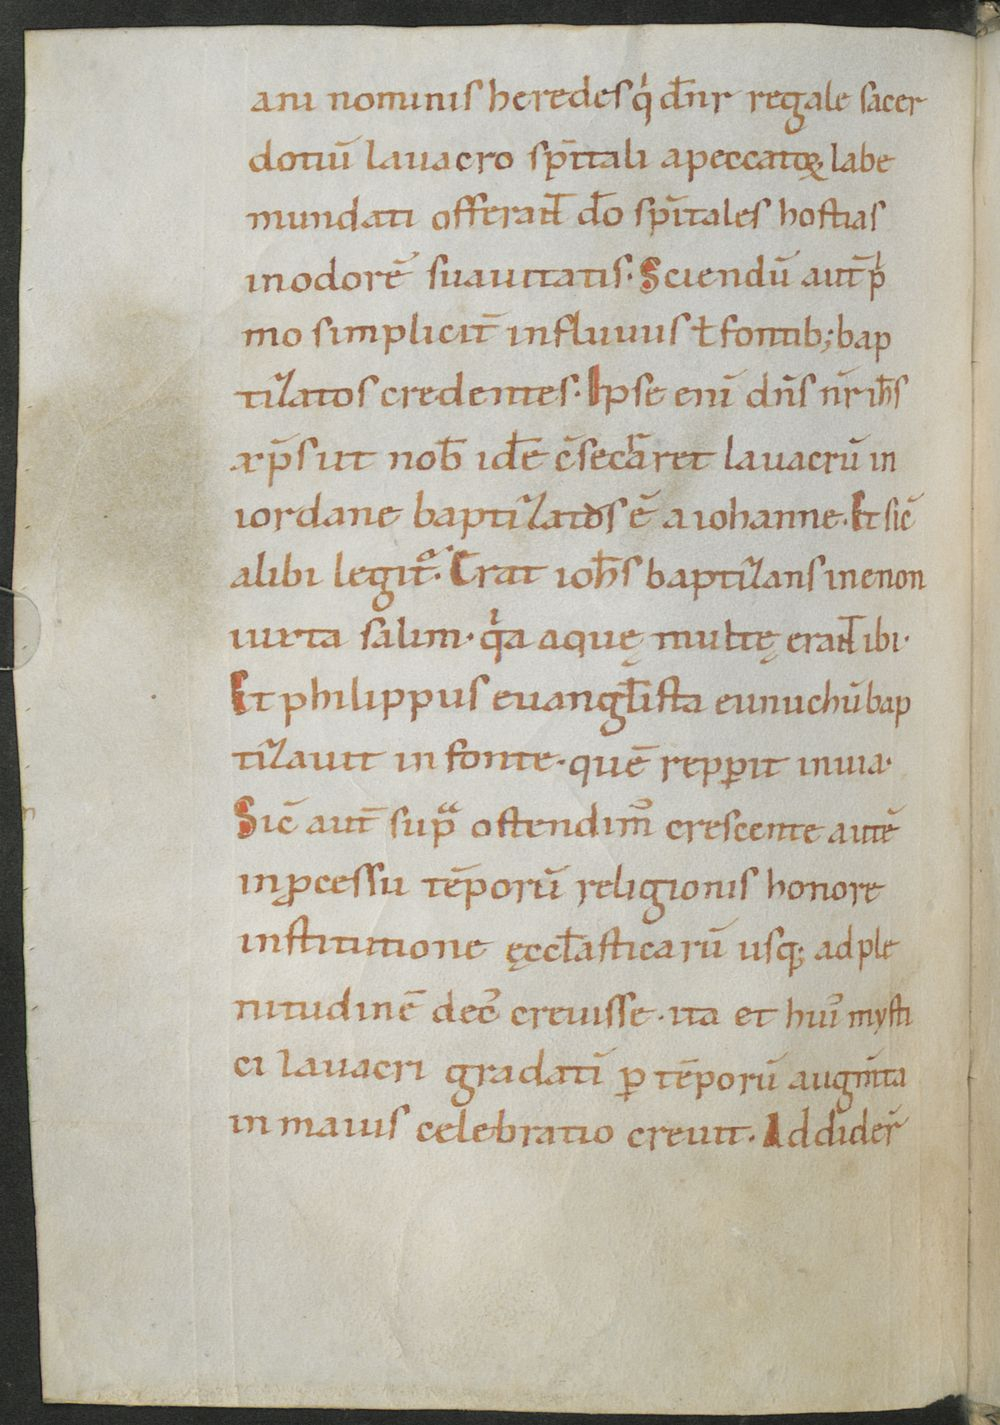 ani nominis heredes q͛ dn̄r regale sacer
dotiū lauacro sp̄itali apeccatoꝝ labe
mundati offeran̄t dō sp̄itales hostias
inodorē suauitatis. Sciendū aut̄ p͛
mo simpliciť influuiis ł fontib; bap
tizatos credentes. Ipse eni dn̄s nr̄ ih̄s
xp̄s ut nob̄ idē c̄secͣret lauacrū in
iordane baptizatus ē a iohanne. Et sic̄
alibi legit᷑. Erat ioh̄s baptizans inenon
iuxta salim. q͛a aquę multę eran̄t ibi.
Et philippus euangl̄ista eunuchū bap
tizauit in fonte. quē repꝑit inuia.
Sic̄ aut̄ supͣ ostendim᷒ crescente autē
inꝓcessu tēporū religionis honore
institutione ęccl̄asticarū usq; adple
nitudinē dec᷒ creuisse. ita et hui᷒ mysti
ci lauacri gradatī ꝑ tēporū augm̄ta
in maius celebratio creuit. Addider̄